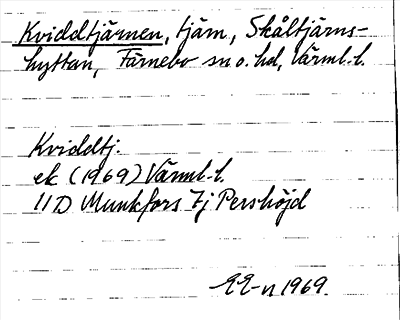 Kviddtjärnen, tjärn, Skåltjärns-
hyttan, Färnebo sn o. hd, Värml. l.
Kviddtj.
ek (1969) Värml. l.
11D Munkfors 7j Pershöjd
EE-n 1969.